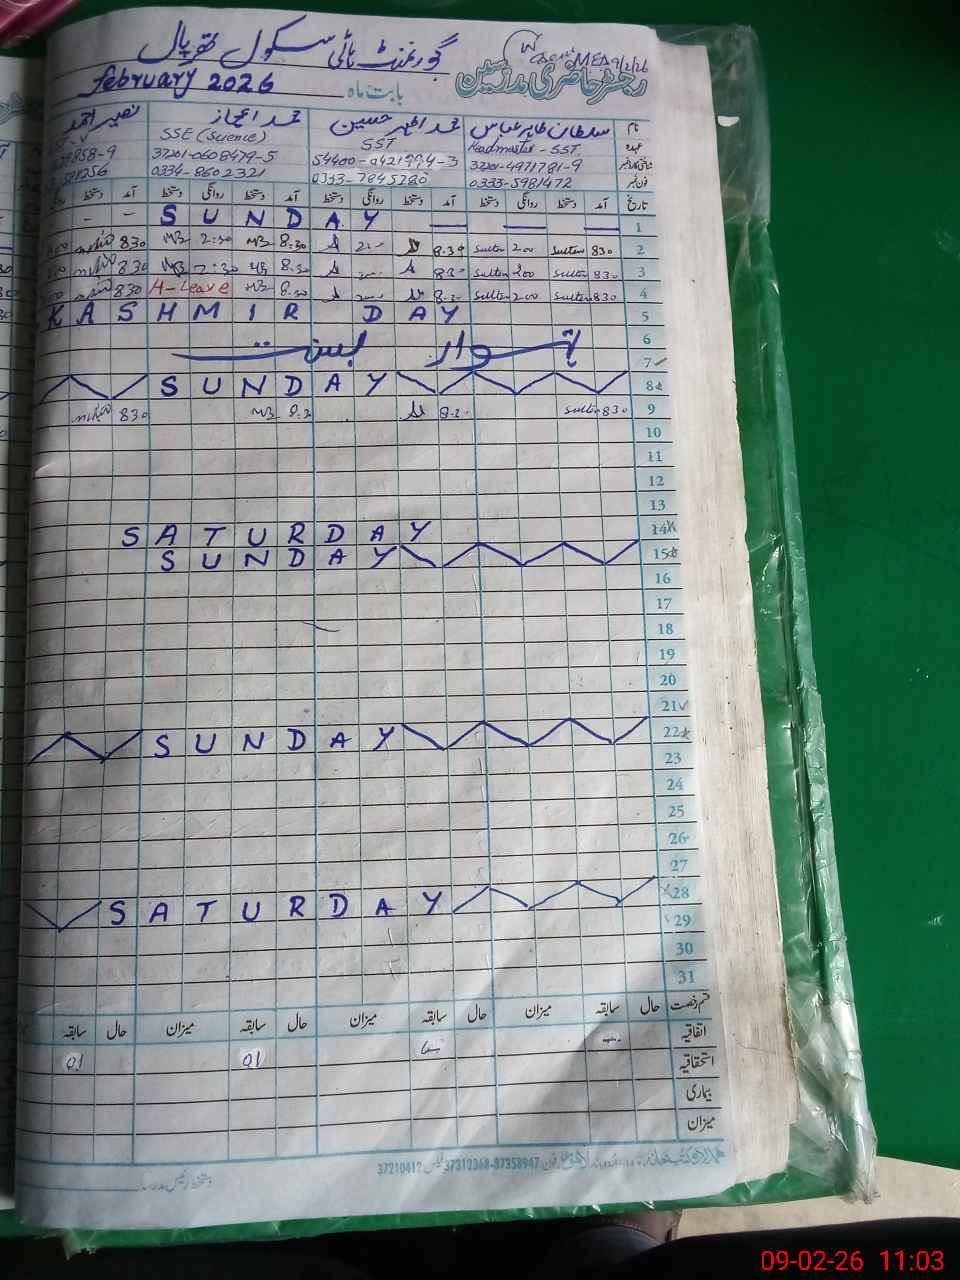 گورنمنٹ ہائی سکول تھرپال
MEA 9/2/26
رجسٹر حاضری مدرسین
بابت ماہ February 2026
نام سلطان طاہر عباس محمد اظہر حسین محمد اعجاز نصیر احمد
عہدہ Headmaster - SST SST SSE (Science)
37201-4971781-9 54400-0421994-3 37201-0608479-5 858-9
0333-5981472 0333-7845280 0334-8602321
تاریخ آمد دستخط روانگی دستخط آمد دستخط روانگی دستخط آمد دستخط روانگی دستخط آمد دستخط
1 SUNDAY
2 830 Sultan 200 Sultan 8.30 8.30 MB 2:30 MB 830
3 830 Sultan 200 Sultan 8.30 MB 2:30 MB 830
4 830 Sultan 200 Sultan 8.30 MB A-Leave 830
5 KASHMIR DAY
6
7 تہوار بسنت
8 SUNDAY
9 830 Sultan 8.30 8.30 MB 830
10
11
12
13
14 SATURDAY
15 SUNDAY
16
17
18
19
20
21
22 SUNDAY
23
24
25
26
27
28 SATURDAY
29
30
31
قسم رخصت حال سابقہ میزان حال سابقہ میزان حال سابقہ میزان حال سابقہ
اتفاقیہ
استحقاقیہ 01 01
بیماری
میزان
37210412 فیکس 37312368-37358947 فون
دستخط رئیس مدرسہ
09-02-26 11:03